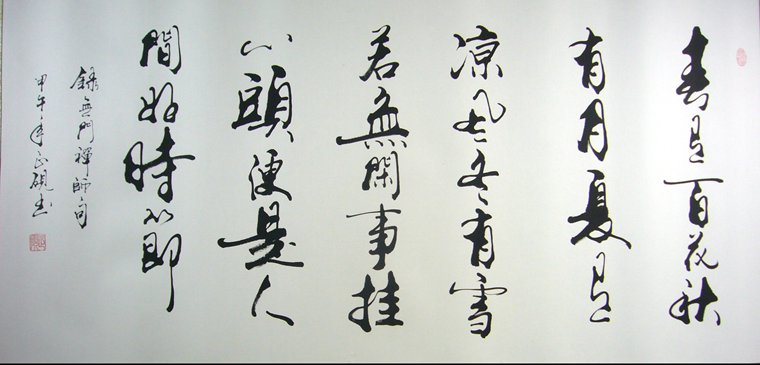 春有百花秋
有月夏有
凉风冬有雪
若無閑事挂
心頭便是人
間好時節
錄無門禪師句
甲午年正硯书